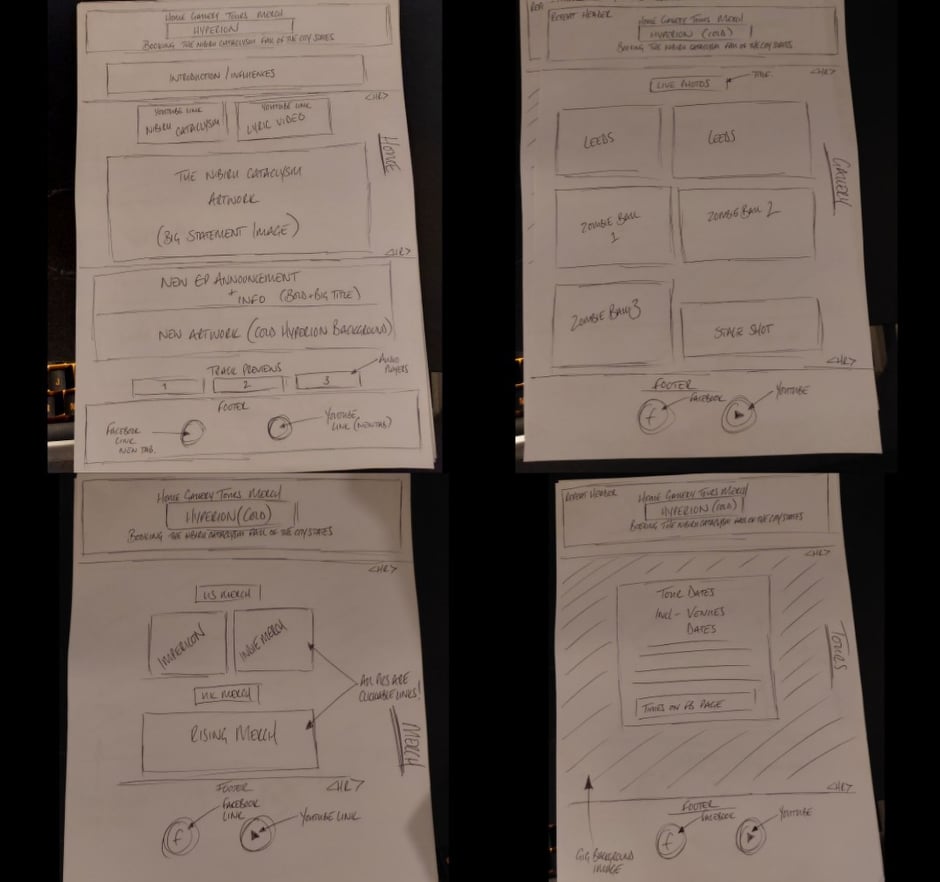 Home Gallery Tours Merch
HYPERION
Booking The Nibiru Cataclysm Fall of the City States
INTRODUCTION / INFLUENCES
<HR>
YOUTUBE LINK
NIBIRU CATACLYSM
YOUTUBE LINK
LYRIC VIDEO
HOME
THE NIBIRU CATACLYSM
ARTWORK
(BIG STATEMENT IMAGE)
<HR>
NEW EP ANNOUNCEMENT
+ INFO (BOLD + BIG TITLE)
NEW ARTWORK (COLD HYPERION BACKGROUND)
TRACK PREVIEWS
AUDIO
PLAYERS
1
2
3
FOOTER
FACEBOOK
LINK
NEW TAB.
YOUTUBE
LINK (NEW TAB)
REPEAT HEADER
Home Gallery Tours Merch
HYPERION (COLD)
Booking The Nibiru Cataclysm Fall of the City States
<HR>
LIVE PHOTOS
TITLE
LEEDS
LEEDS
GALLERY
ZOMBIE BALL
1
ZOMBIE BALL 2
ZOMBIE BALL 3
STAGE SHOT
<HR>
FOOTER
FACEBOOK
YOUTUBE
f
Home Gallery Tours Merch
HYPERION (COLD)
Booking The Nibiru Cataclysm Fall of the City States
<HR>
US MERCH
IMPERICON
INDIEMERCH
ALL PICS ARE
CLICKABLE LINKS!
UK MERCH
RISING MERCH
MERCH
<HR>
FOOTER
FACEBOOK
LINK
YOUTUBE LINK
f
REPEAT HEADER
Home Gallery Tours Merch
HYPERION (COLD)
Booking The Nibiru Cataclysm Fall of the City States
<HR>
TOUR DATES
INCL - VENUES
DATES
TOURS
TIMES ON FB PAGE
<HR>
FOOTER
FACEBOOK
YOUTUBE
f
GIG BACKGROUND
IMAGE